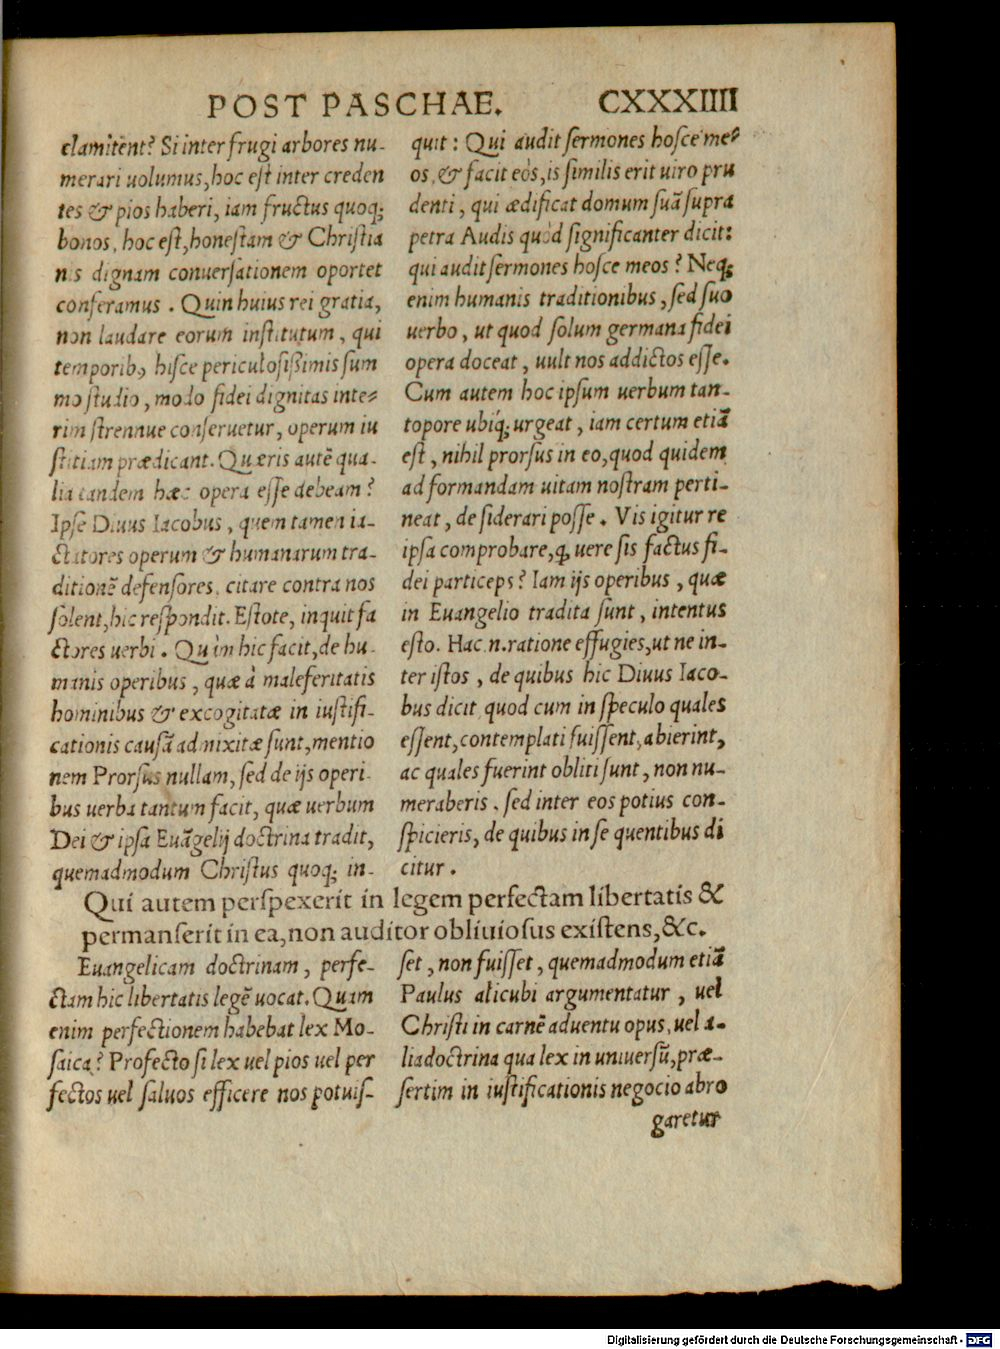 POST PASCHAE. CXXXIIII
clamitent? Si inter frugi arbores nu-
merari uolumus, hoc est inter creden
tes & pios haberi, iam fructus quoq;
bonos, hoc est, honestam & Christia
nis dignam conuersationem oportet
conferamus. Quin huius rei gratia,
non laudare eorum institutum, qui
temporibꝰ hisce periculosißimis sum
mo studio, modo fidei dignitas inte-
rim strennue conseruetur, operum iu
stitiam prædicant. Quæris autē qua-
lia tandem hæc opera esse debeam?
Ipse Diuus Iacobus, quem tamen ia-
ctatores operum & humanarum tra-
ditionē defensores, citare contra nos
solent, hic respondit. Estote, inquit fa
ctores uerbi. Quin hic facit, de hu-
manis operibus, quæ à maleferitatis
hominibus & excogitatæ in iustifi-
cationis causā admixitæ sunt, mentio
nem Prorsus nullam, sed de ijs operi-
bus uerba tantum facit, quæ uerbum
Dei & ipsa Euāgelij doctrina tradit,
quemadmodum Christus quoq; in-
quit: Qui audit sermones hosce me-
os, & facit eòs, is similis erit uiro pru
denti, qui ædificat domum suā supra
petra Audis quòd significanter dicit:
qui audit sermones hosce meos? Neq;
enim humanis traditionibus, sed suo
uerbo, ut quod solum germana fidei
opera doceat, uult nos addictos esse.
Cum autem hoc ipsum uerbum tan-
topore ubiq́; urgeat, iam certum etiā
est, nihil prorsus in eo, quod quidem
ad formandam uitam nostram perti-
neat, desiderari posse. Vis igitur re
ipsa comprobare, ꝙ uere sis factus fi-
dei particeps? Iam ijs operibus, quæ
in Euangelio tradita sunt, intentus
esto. Hac.n.ratione effugies, ut ne in-
ter istos, de quibus hic Diuus Iaco-
bus dicit quod cum in speculo quales
essent, contemplati fuissent, abierint,
ac quales fuerint obliti sunt, non nu-
meraberis. sed inter eos potius con-
spicieris, de quibus in se quentibus di
citur.
Qui autem perspexerit in legem perfectam libertatis &
permanserit in ea, non auditor obliuiosus existens, &c.
Euangelicam doctrinam, perfe-
ctam hic libertatis legē uocat. Quam
enim perfectionem habebat lex Mo-
saica? Profecto si lex uel pios uel per
fectos uel saluos efficere nos potuis-
set, non fuisset, quemadmodum etiā
Paulus alicubi argumentatur, uel
Christi in carnē aduentu opus, uel a-
lia doctrina qua lex in uniuersū, præ-
sertim in iustificationis negocio abro
garetur
Digitalisierung gefördert durch die Deutsche Forschungsgemeinschaft - DFG